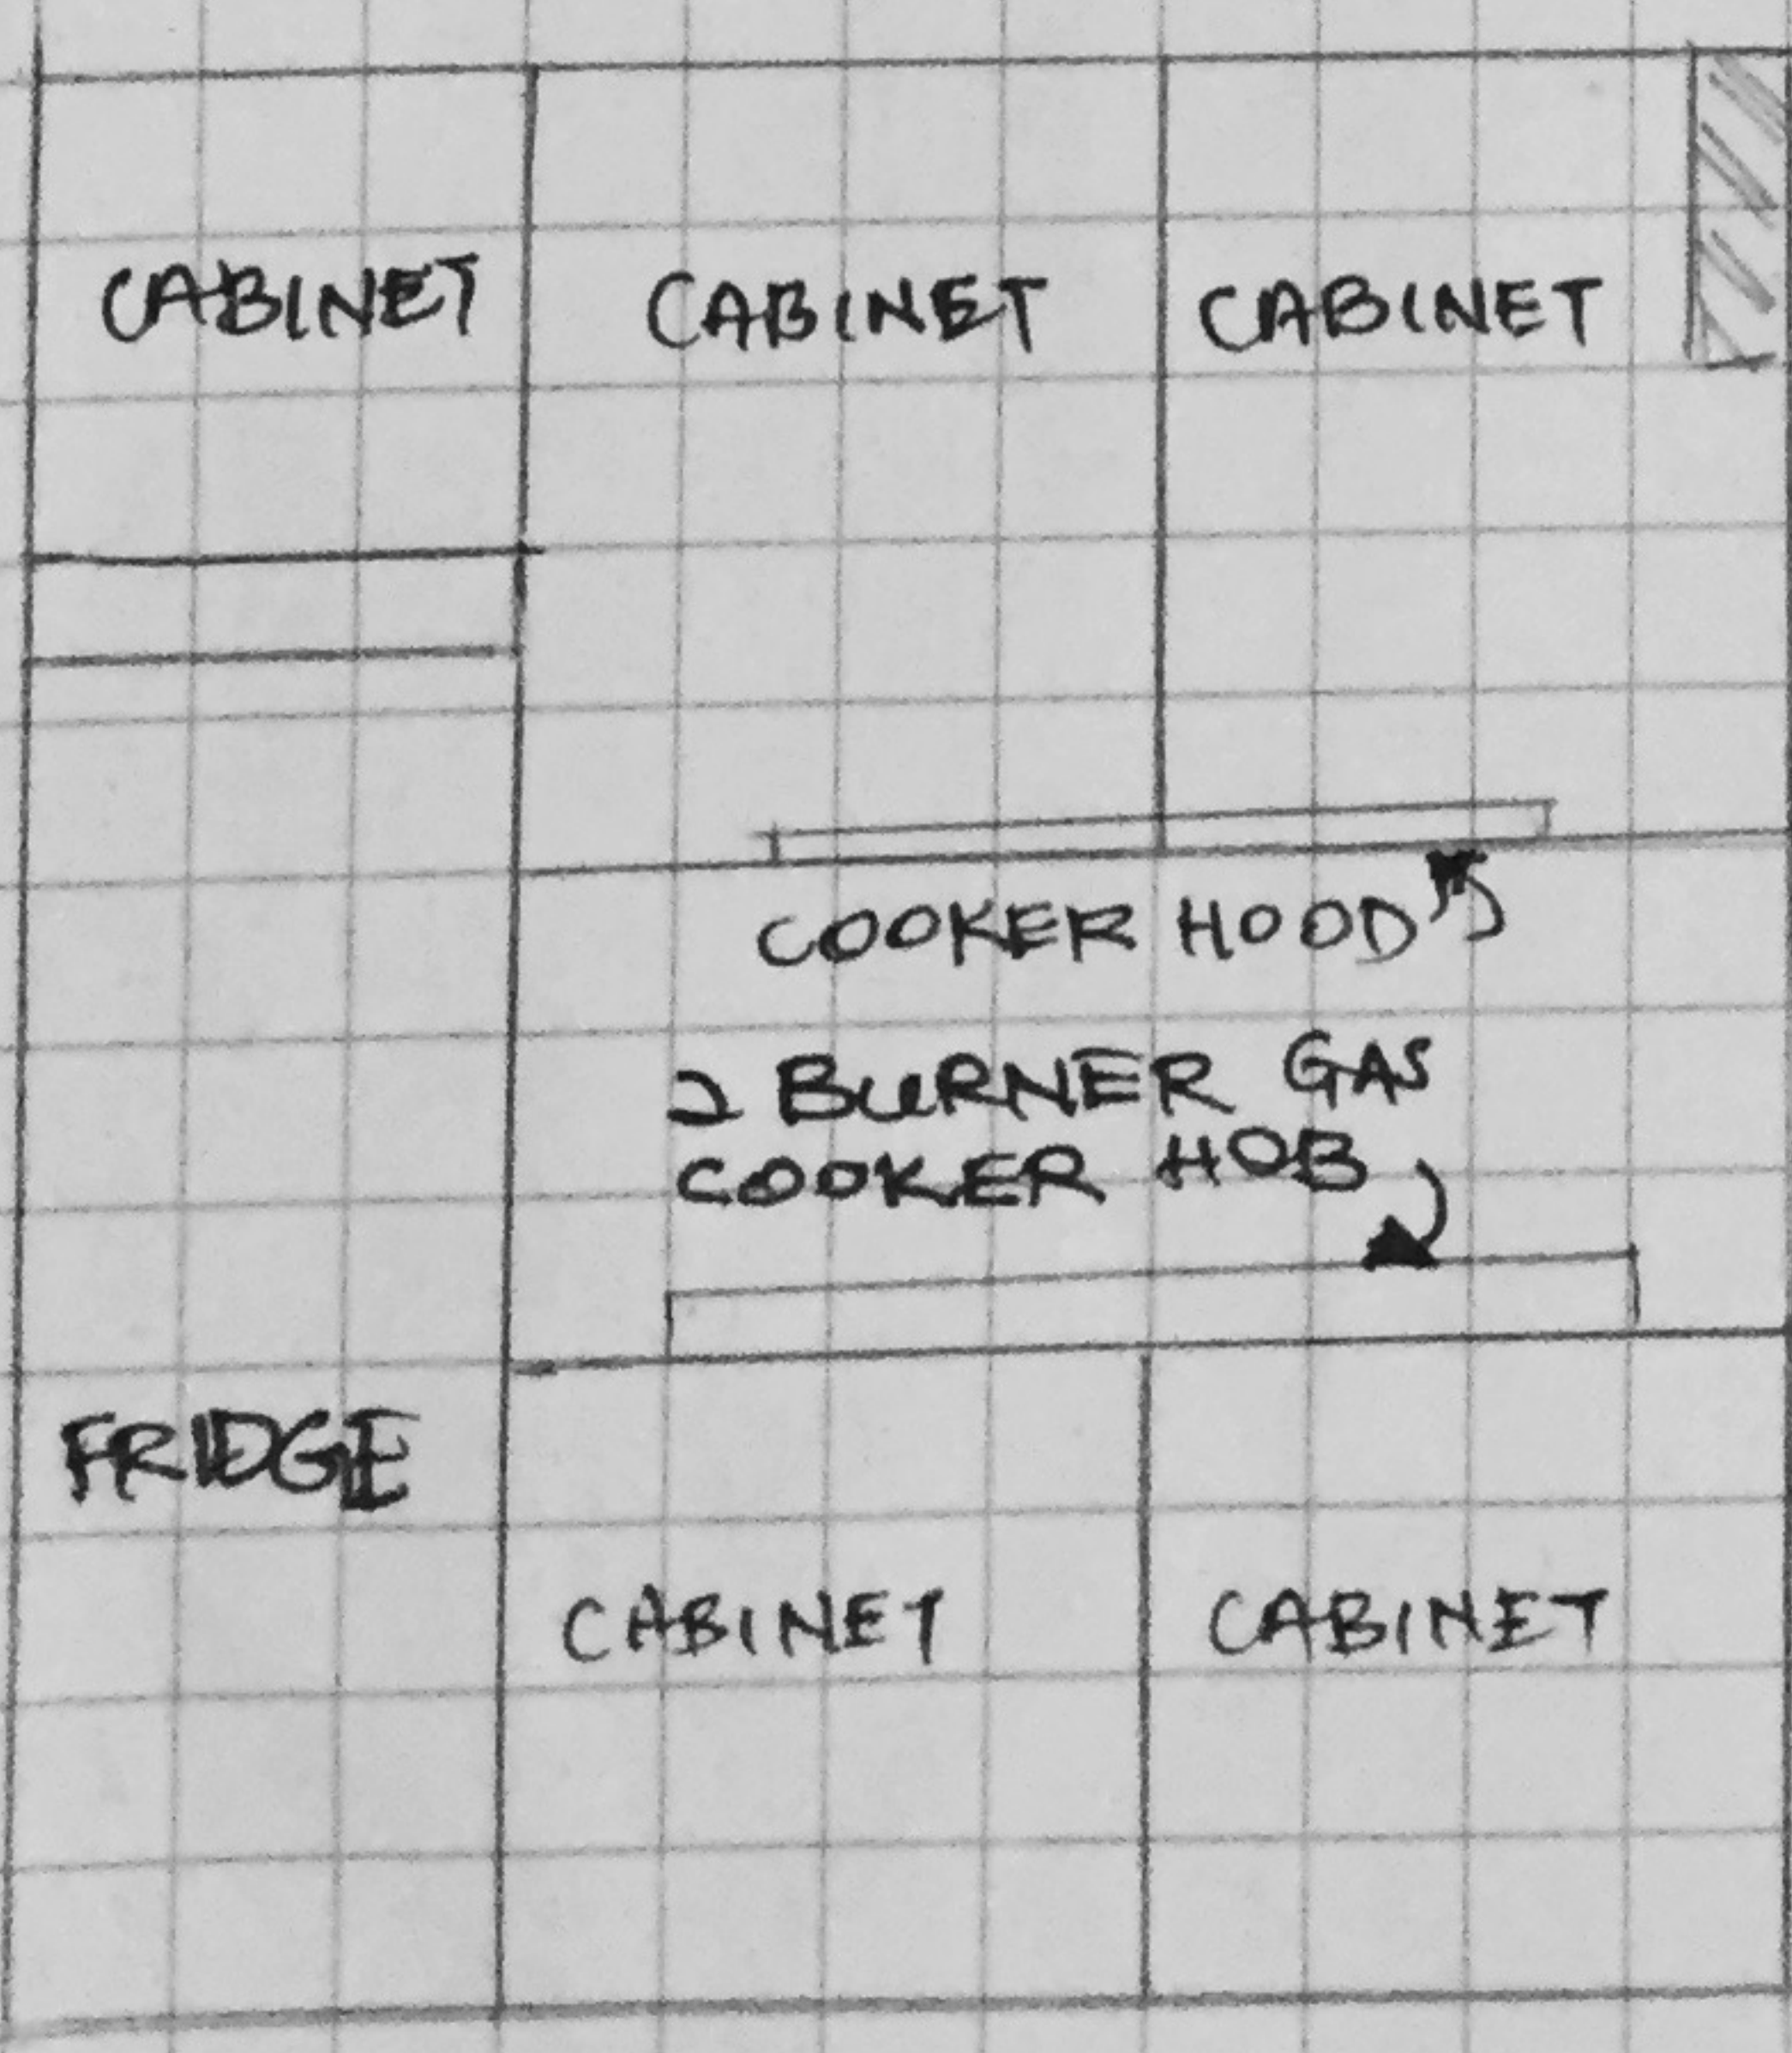 CABINET CABINET CABINET
COOKER HOOD
2 BURNER GAS
COOKER HOB
FRIDGE
CABINET CABINET